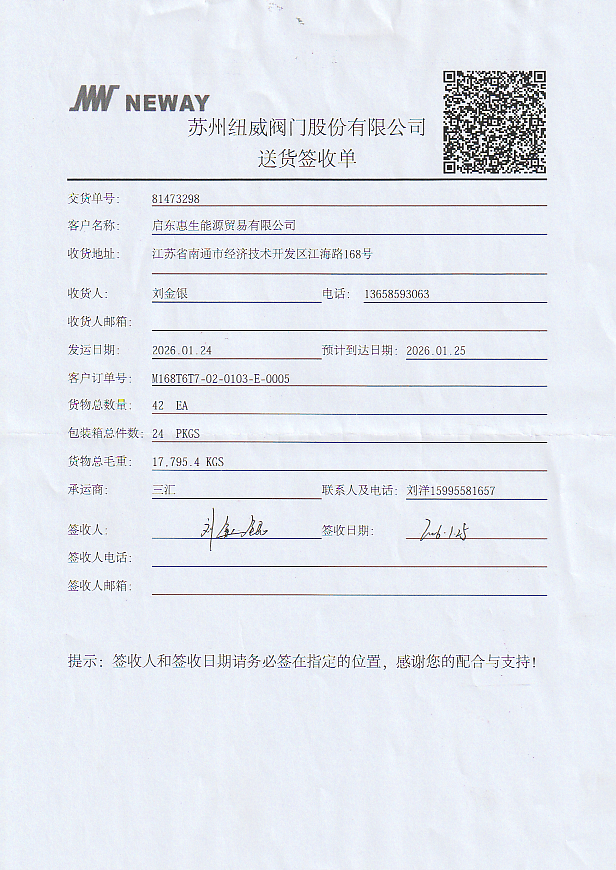 NEWAY
苏州纽威阀门股份有限公司
送货签收单
交货单号: 81473298
客户名称: 启东惠生能源贸易有限公司
收货地址: 江苏省南通市经济技术开发区江海路168号
收货人: 刘金银 电话: 13658593063
收货人邮箱:
发运日期: 2026.01.24 预计到达日期: 2026.01.25
客户订单号: M168T6T7-02-0103-E-0005
货物总数量: 42 EA
包装箱总件数: 24 PKGS
货物总毛重: 17,795.4 KGS
承运商: 三汇 联系人及电话: 刘洋15995581657
签收人: 刘金银 签收日期: 2026.1.25
签收人电话:
签收人邮箱:
提示: 签收人和签收日期请务必签在指定的位置, 感谢您的配合与支持!